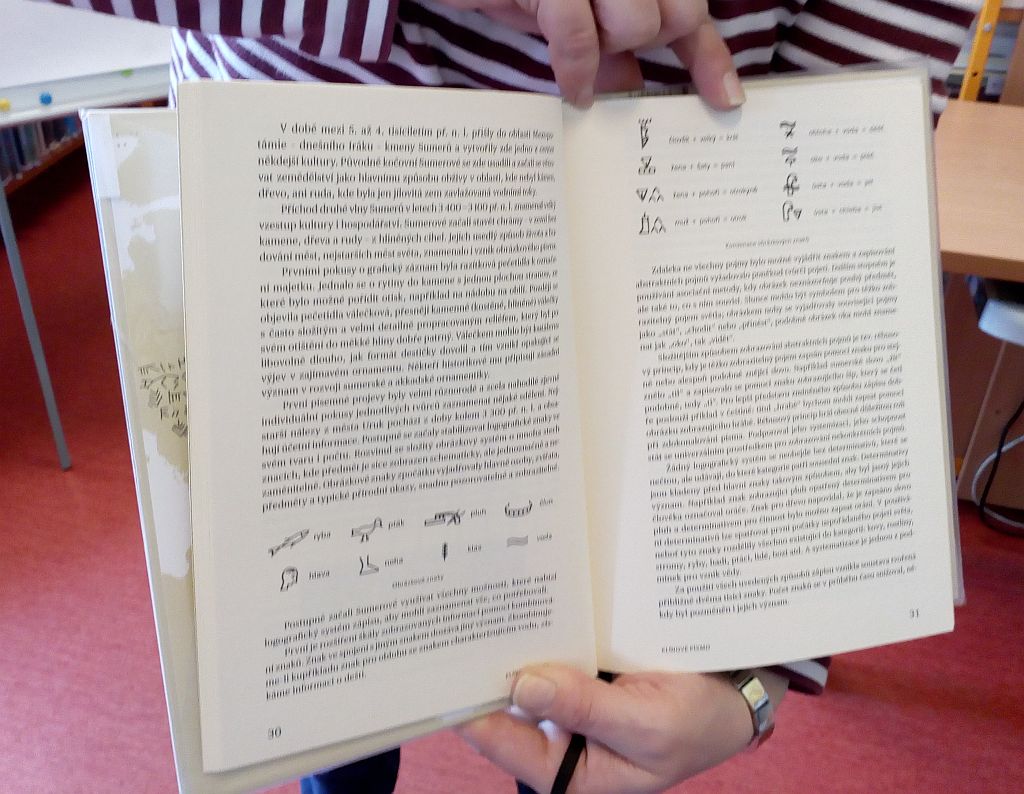 V době mezi 5. až 4. tisíciletím př. n. l. přišly do oblasti Mezopo-
támie – dnešního Iráku – kmeny Sumerů a vytvořily zde jedno z center
někdejší kultury. Původně kočovní Sumerové se zde usadili a začali se věno-
vat zemědělství jako hlavnímu způsobu obživy v oblasti, kde nebyl kámen,
dřevo, ani ruda, kde byla jen jílovitá zem zavlažovaná vodními toky.
Příchod druhé vlny Sumerů v letech 3 400 – 3 100 př. n. l. znamenal velký
vzestup kultury i hospodářství. Sumerové začali stavět chrámy – v zemi bez
kamene, dřeva a rudy – z hliněných cihel. Jejich usedlý způsob života a bu-
dování měst, nejstarších měst světa, znamenalo i vznik obrázkového písma.
Prvními pokusy o grafický záznam byla razítková pečetidla k označe-
ní majetku. Jednalo se o rytiny do kamene s jednou plochou stranou, ze
které bylo možné pořídit otisk, například na nádobu na obilí. Později se
objevila pečetidla válečková, přesněji kamenné (kostěné, hliněné) válečky
s často složitým a velmi detailně propracovaným reliéfem, který byl po
svém otištění do měkké hlíny dobře patrný. Válečkem mohlo být kutáleno
libovolně dlouho, jak formát destičky dovolil a tím vznikl opakující se
výjev v zajímavém ornamentu. Někteří historikové mu připisují zásadní
význam v rozvoji sumerské a akkadské ornamentiky.
První písemné projevy byly velmi různorodé a zcela nahodile zjevně
individuální pokusy jednotlivých tvůrců zaznamenat nějaké sdělení. Nej-
starší nálezy z města Uruk pochází z doby kolem 3 300 př. n. l. a obsa-
hují účetní informace. Postupně se začaly stabilizovat logografické znaky ve
svém tvaru i počtu. Rozvinul se složitý obrázkový systém o mnoha stech
znacích, kde předmět je sice zobrazen schematicky, ale jednoznačně a ne-
zaměnitelně. Obrázkové znaky zpočátku vyjadřovaly hlavně osoby, zvířata,
předměty a typické přírodní úkazy, snadno pozorovatelné a zobrazitelné.
ryba pták pluh člun
hlava noha klas voda
Obrázkové znaky
Postupně začali Sumerové využívat všechny možnosti, které nabízí
logografický systém zápisu, aby mohli zaznamenat vše, co potřebovali.
První je rozšíření škály zobrazovaných informací pomocí kombinová-
ní znaků. Znak ve spojení s jiným znakem dostává jiný význam. Zkombinuje-
me-li kupříkladu znak pro oblohu se znakem charakterizujícím vodu, zís-
káme informaci o dešti.
30
člověk + velký = král
obloha + voda = déšť
žena + šaty = paní
oko + voda = pláč
žena + pohoří = otrokyně
ústa + voda = pít
muž + pohoří = otrok
ústa + obloha = jíst
Kombinace obrázkových znaků
Zdaleka ne všechny pojmy bylo možné vyjádřit znakem a zapisování
abstraktních pojmů vyžadovalo poněkud tvůrčí pojetí. Dalším stupněm je
používání asociační metody, kdy obrázek neznázorňuje pouhý předmět,
ale také to, co s ním souvisí. Slunce mohlo být symbolem pro těžko zob-
razitelný pojem světla, obrázkem nohy se vyjadřovaly související pojmy
jako „stát“, „chodit“ nebo „přinést“, podobně obrázek oka mohl zname-
nat jak „oko“, tak „vidět“.
Složitějším způsobem zobrazování abstraktních pojmů je tzv. rébuso-
vý princip, kdy je těžko zobrazitelný pojem zapsán pomocí znaku pro stej-
ně nebo alespoň podobně znějící slovo. Například sumerské slovo „žít“
znělo „til“ a zapisovalo se pomocí znaku zobrazujícího šíp, který se četl
podobně, tedy „ti“. Pro lepší představu zmíněného způsobu zápisu dob-
ře poslouží příklad v češtině: úml „hrabě“ bychom mohli zapsat pomocí
obrázku zobrazujícího hrábě. Rébusový princip hrál obecně důležitou roli
při zdokonalování písma. Podporoval jeho systemizaci, jeho schopnost
stát se univerzálním prostředím pro zobrazování nekonkrétních pojmů.
Žádný logografický systém se neobejde bez determinativů, které se
nečtou, ale udávají, do které kategorie patří sousední znak. Determinativy
jsou kladeny před hlavní znaky takovým způsobem, aby byl jasný jejich
význam. Například znak zobrazující pluh opatřený determinativem pro
člověka označoval oráče. Znak pro dřevo napovídal, že je zapsáno slovo
pluh a determinativem pro činnost bylo možno zapsat orání. V používá-
ní determinativů lze spatřovat první počátky uspořádaného pojetí světa,
neboť tyto znaky rozdělily všechno existující do kategorií: kovy, rostliny,
stromy, ryby, hadi, ptáci, lidé, bozi atd. A systematizace je jednou z pod-
mínek pro vznik vědy.
Za použití všech uvedených způsobů zápisu vznikla soustava tvořená
přibližně dvěma tisíci znaky. Počet znaků se v průběhu času snižoval, ně-
kdy byl pozměněn i jejich význam.
KLÍNOVÉ PÍSMO
31